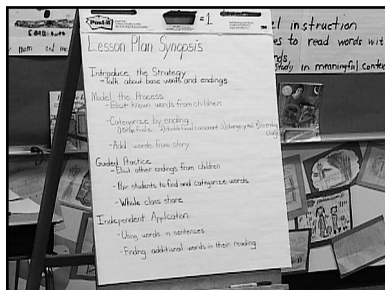 Post-it
#1
Lesson Plan Synopsis
Introduce the Strategy
- Talk about base words and endings
Model the Process
- Elicit known words from children
- Categorize by ending
- Add words from story
Guided Practice
- Elicit other endings from children
- Pair students to find and categorize words
- Whole class share
Independent Application
- Using words in sentences
- Finding additional words in their reading
instruction
to read words wit
study in meaningful conte